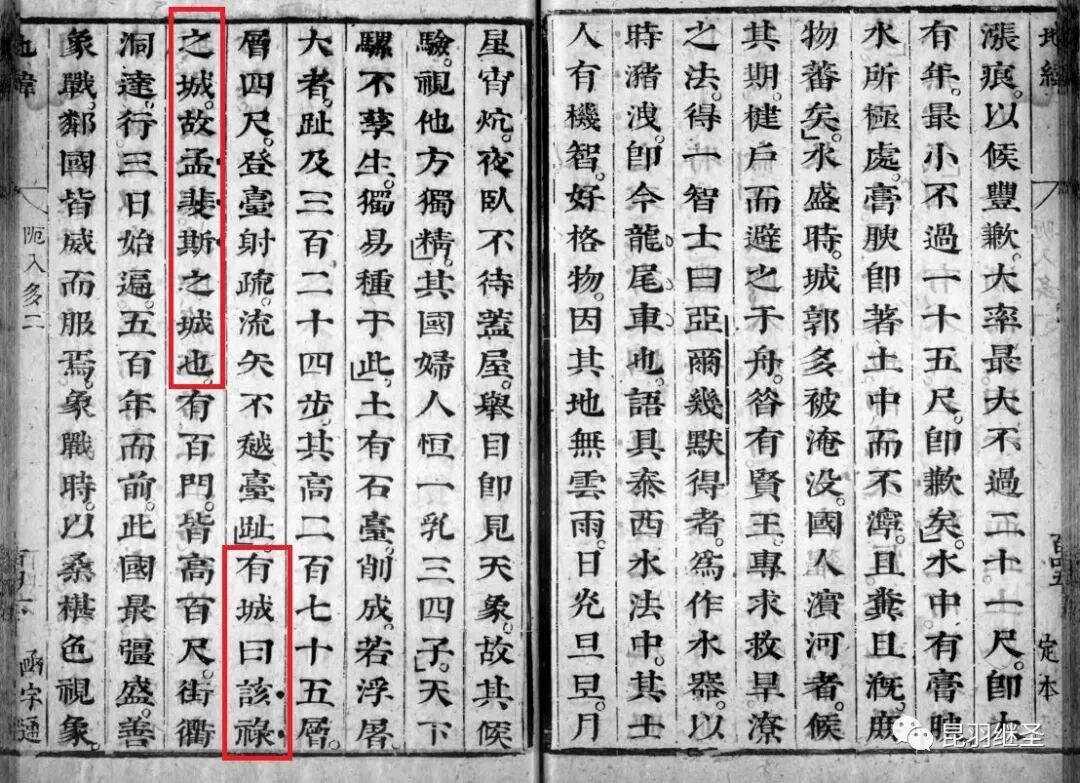 地緯
定本
漲痕。以候豐歉。大率最大不過二十一尺。卽大
有年。最小不過一十五尺。卽歉矣。水中有膏腴
水所極處。膏腴卽著土中而不濘。且糞且溉。庶
物蕃矣。水盛時。城郭多被淹没。國人濱河者。候
其期。楗戶而避之于舟。昝有賢王。專求救旱潦
之法。得一智士曰亞爾幾默得者。為作水器。以
時瀦洩。卽今龍尾車也。語具泰西水法中。其士
人有機智。好格物。因其地無雲雨。日光旦旦。月
星宵炕。夜臥不待蓋屋。舉目卽見天象。故其候
驗。視他方獨精。其國婦人恒一乳三四子。天下
騾不孳生。獨易種于此。土有石臺。削成。若浮屠
大者。趾及三百二十四步。其高二百七十五層。
層四尺。登臺射疏。流矢不越臺趾。有城曰該祿
之城。故孟斐斯之城也。有百門。皆高百尺。街衢
洞達。行三日始遍。五百年而前。此國最彊盛。善
象戰。鄰國皆威而服焉。象戰時。以桑椹色視象。
地緯
阨入多二
函宇通
昆羽继圣